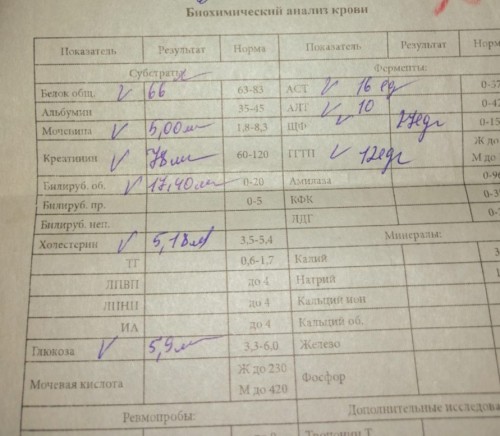 Биохимический анализ крови
Показатель Результат Норма Показатель Результат
Субстраты: Ферменты:
Белок общ. V 66 63-83 АСТ V 16 ед
Альбумин 35-45 АЛТ V 10
Мочевина V 5,00 1,8-8,3 ЩФ V 27ед
Креатинин V 78 60-120 ГГТП V 12ед
Билируб. об. V 17,40 0-20 Амилаза
Билируб. пр. 0-5 КФК
Билируб. неп. ЛДГ
Холестерин V 5,18 3,5-5,4 Минералы:
ТГ 0,6-1,7 Калий
ЛПВП до 4 Натрий
ЛПНП до 4 Кальций ион
ИА до 4 Кальций об.
Глюкоза V 5,9 3,3-6,0 Железо
Мочевая кислота Ж до 230 М до 420 Фосфор
Ревмопробы: Дополнительные исследова
Тропонин Т